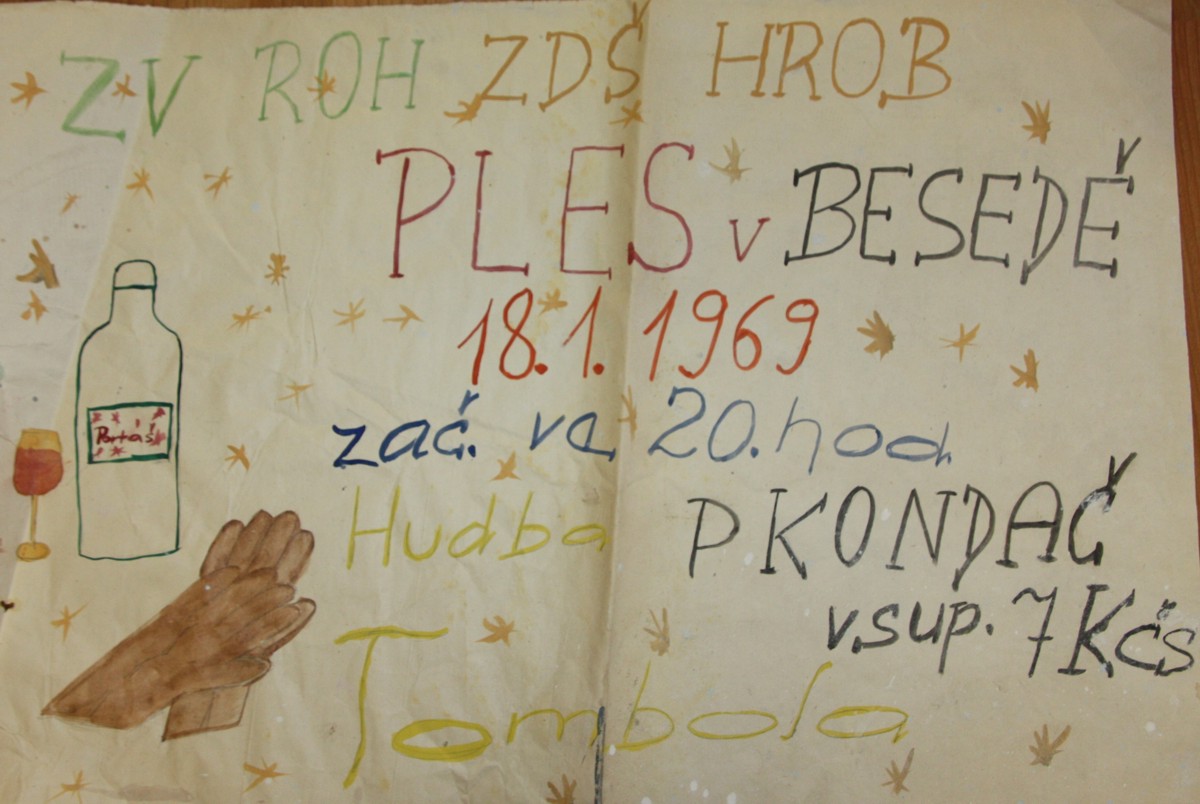 ZV ROH ZDŠ HROB
PLES v BESEDĚ
18.1.1969
zač. ve 20.hod.
Hudba P KONDAČ
v.sup. 7 Kčs
Tombola
Portáš